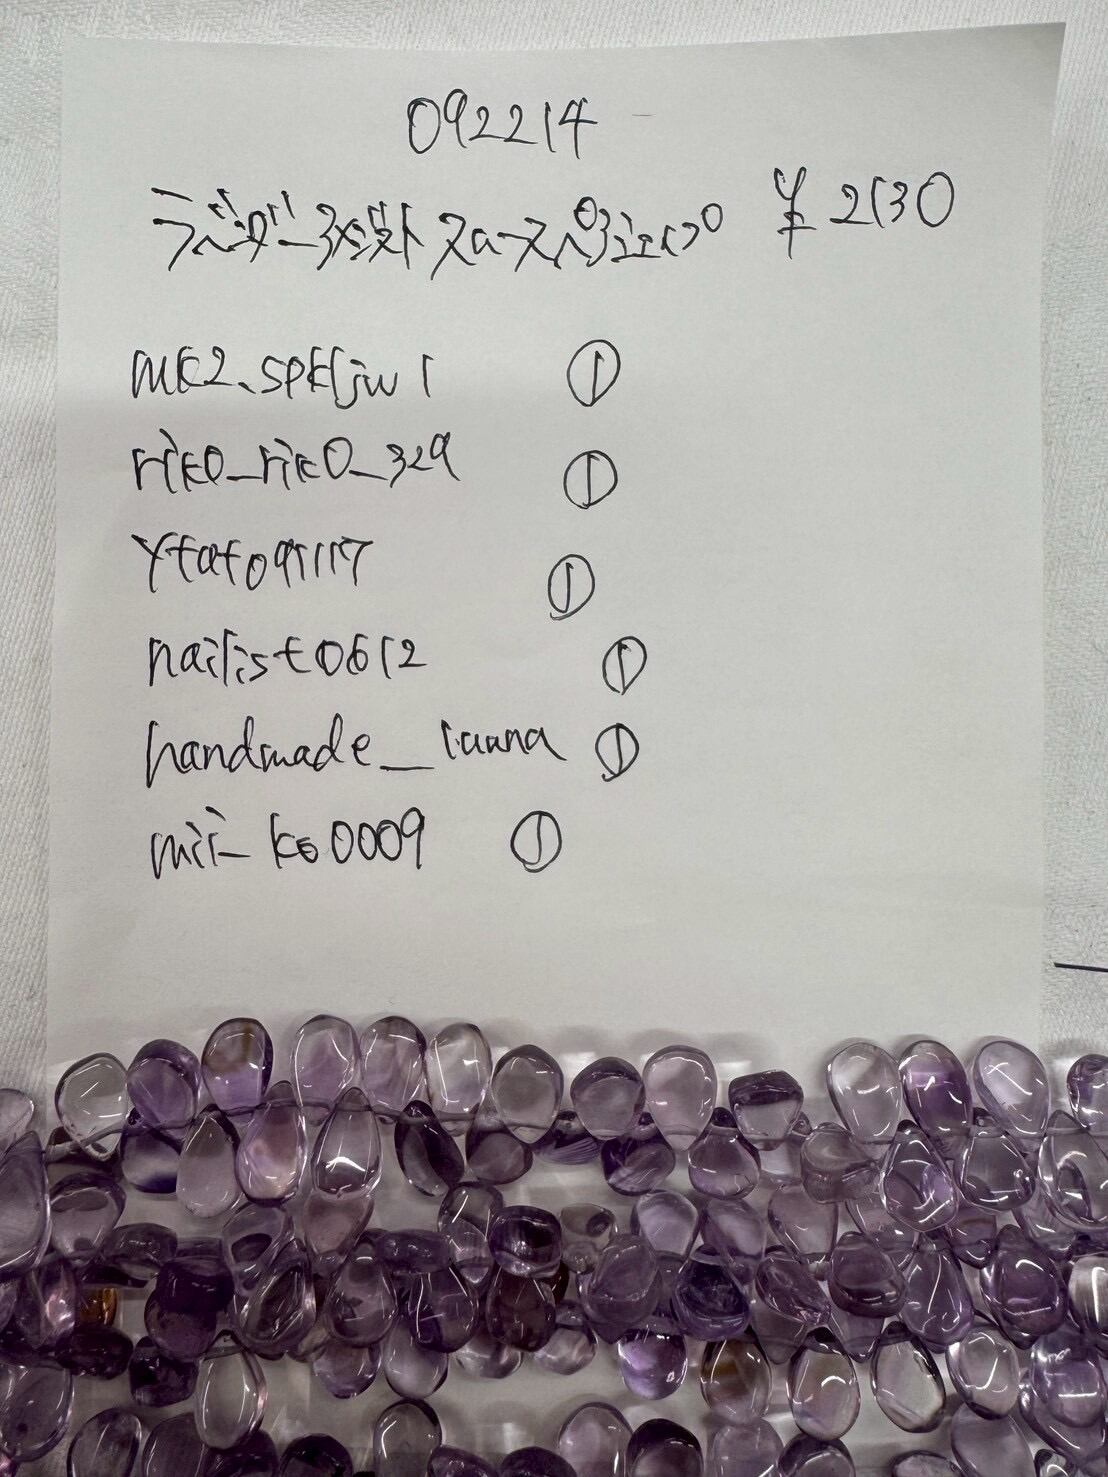 092214
ラベンダーアメジスト スムースペアシェイプ ¥2130
mk2.spkljw1 ①
riko_riko_329 ①
ytat091117 ①
nailist0612 ①
handmade_launa ①
mii_ko0009 ①